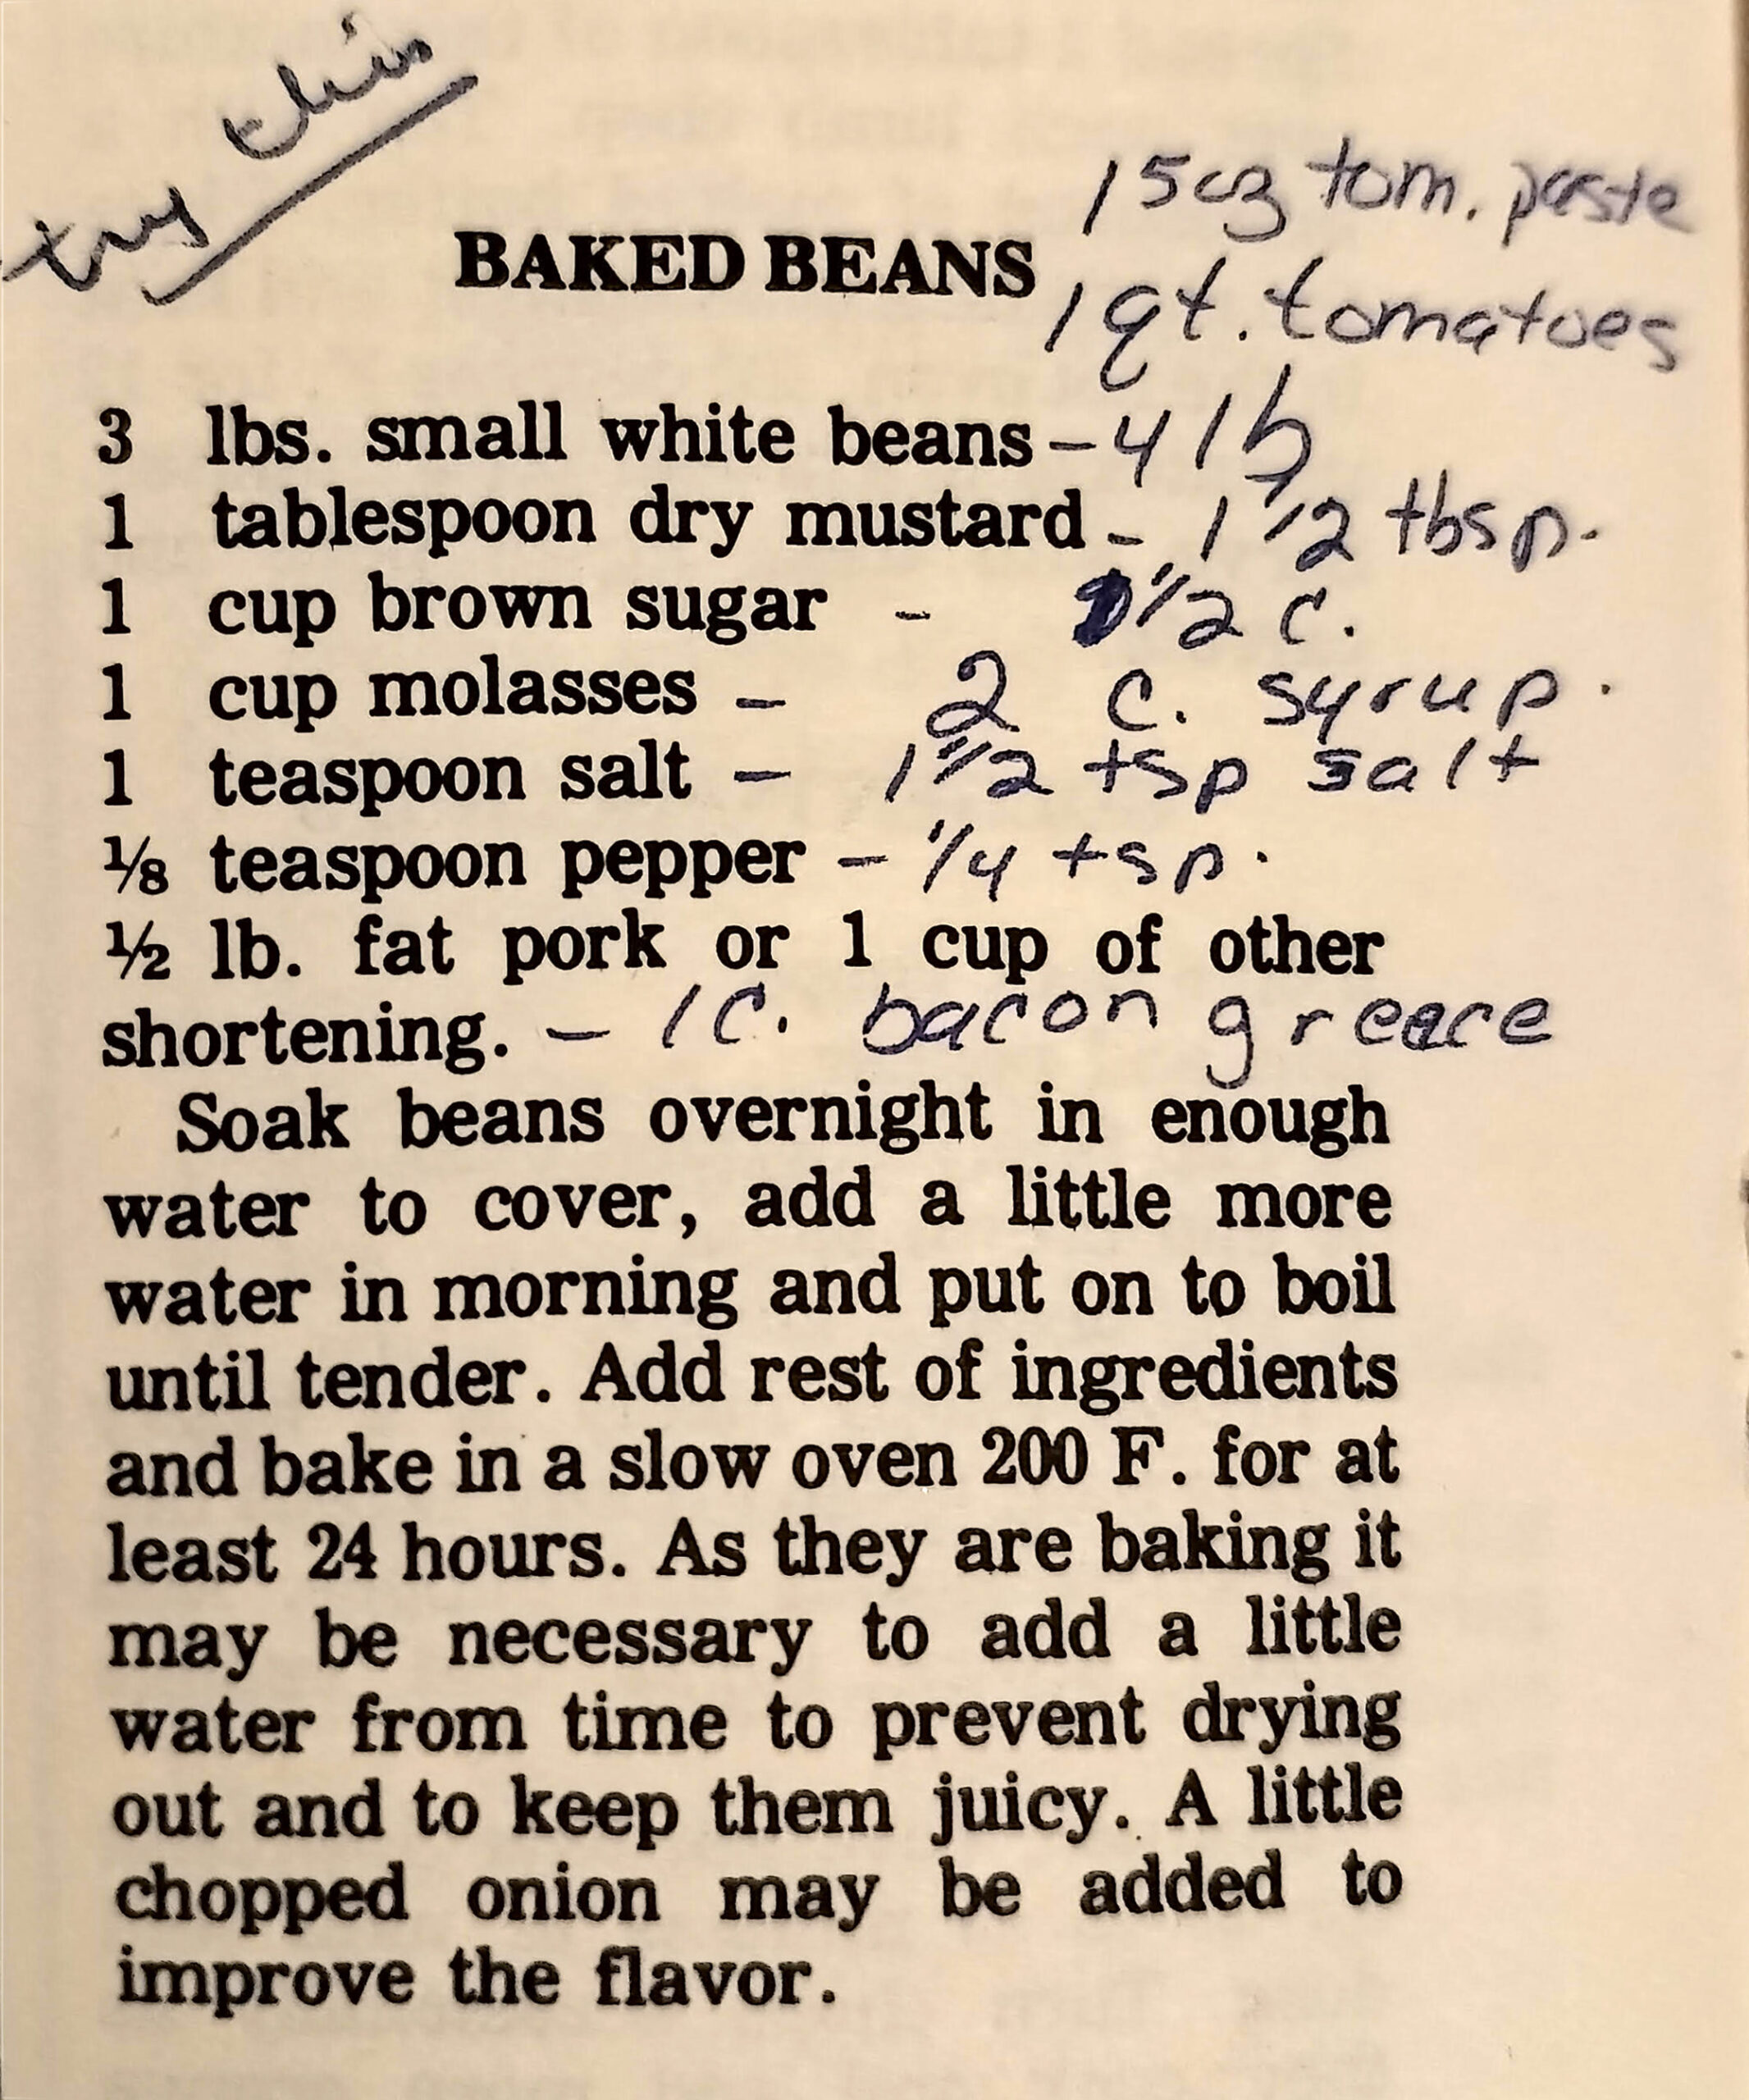 try this
15oz tom. paste
BAKED BEANS
1 qt. tomatoes
3 lbs. small white beans - 4 lb
1 tablespoon dry mustard - 1 1/2 tbsp.
1 cup brown sugar - 1 1/2 c.
1 cup molasses - 2 c. syrup.
1 teaspoon salt - 1 1/2 tsp salt
1/8 teaspoon pepper - 1/4 tsp.
1/2 lb. fat pork or 1 cup of other
shortening. - 1 C. bacon greace
Soak beans overnight in enough
water to cover, add a little more
water in morning and put on to boil
until tender. Add rest of ingredients
and bake in a slow oven 200 F. for at
least 24 hours. As they are baking it
may be necessary to add a little
water from time to prevent drying
out and to keep them juicy. A little
chopped onion may be added to
improve the flavor.